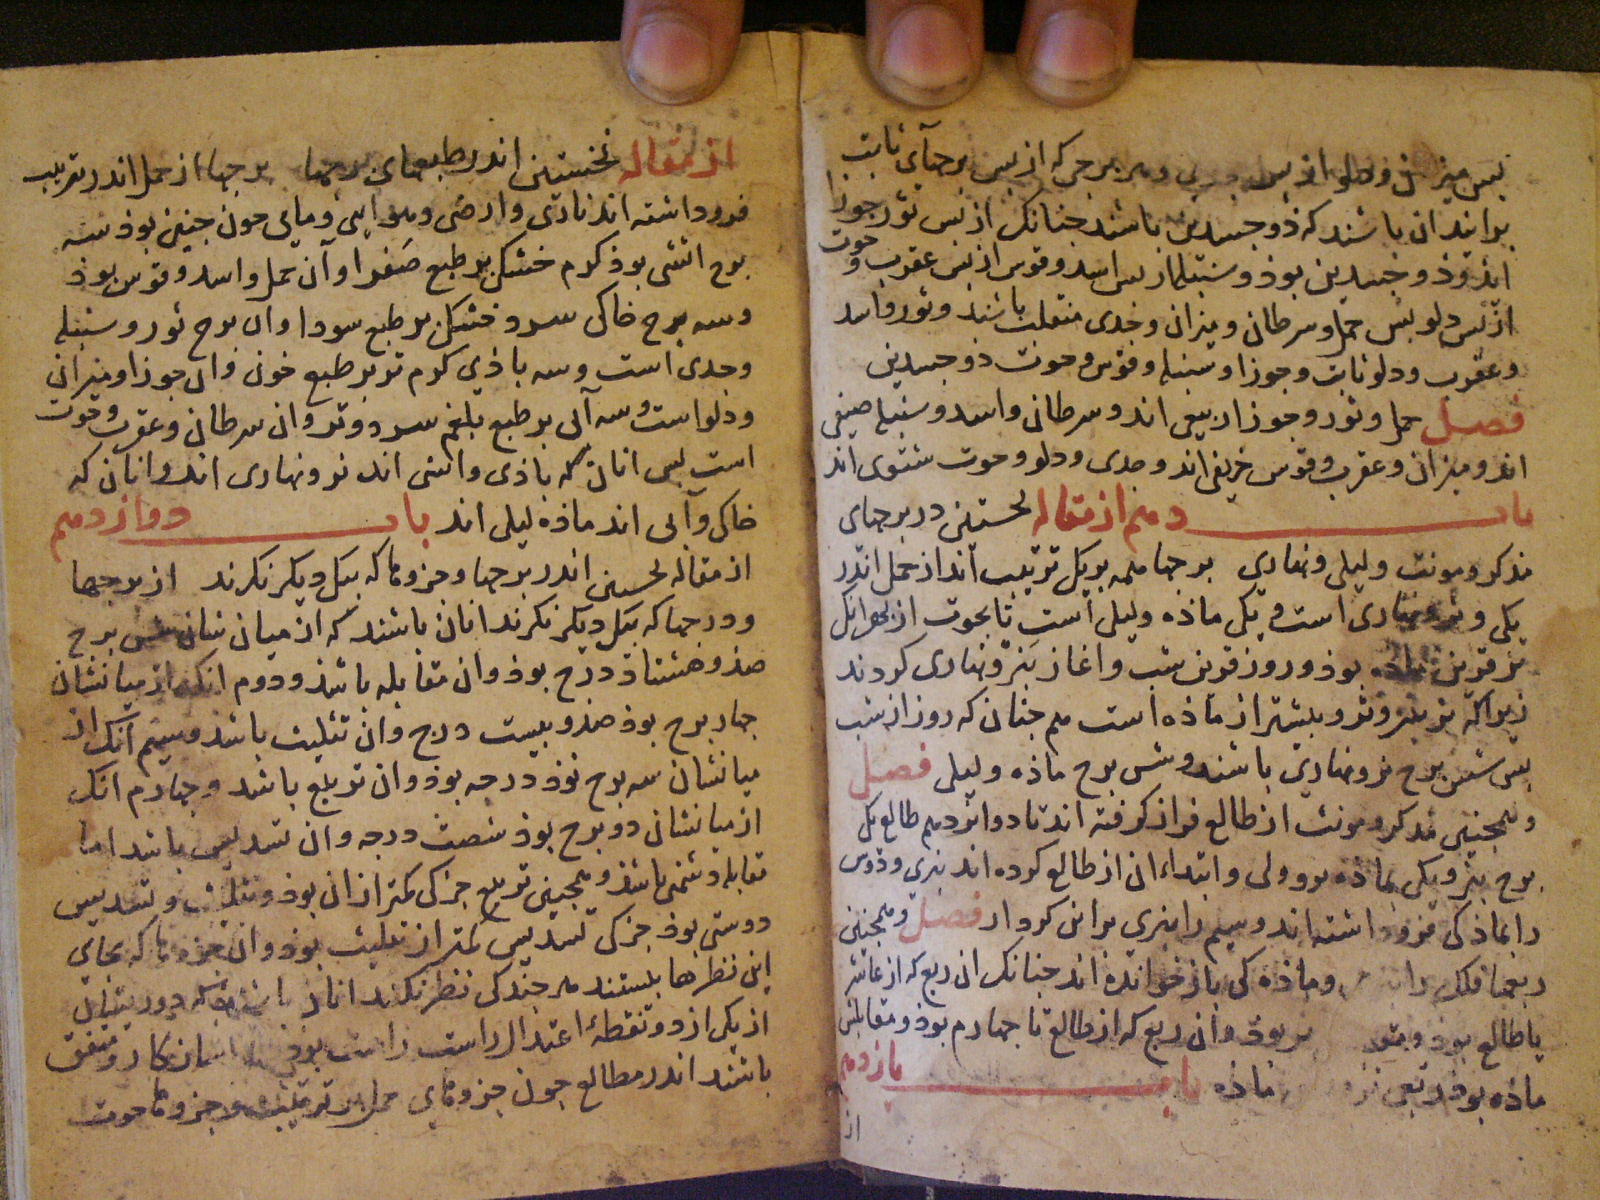 بس میزان و دلو از بس و هر برجی که از بس برجهآی ثابت
برآیند ان باشند که ذوجسدین باشند جنانک از بس ثور جوزا
اید و ذوجسدین بوذ و سنبله از بس اسد و قوس از بس عقرب و حوت
از بس دلو بس حمل و سرطان و میزان و جدی منقلب باشند و ثور و اسد
و عقرب و دلو ثابت و جوزا و سنبله و قوس و حوت ذوجسدین
فصل حمل و ثور و جوزا ربیعی اند و سرطان و اسد و سنبله صیفی
اند و میزان و عقرب و قوس خریفی اند و جدی و دلو و حوت شتوی اند
باب دهم از مقاله نخستین در برجهای
مذکر و مونث و لیلی و نهاری برجها همه بریک ترتیب اند از حمل اندر
یکی نر و نهاری است و یکی ماذه و لیلی است تا بحوت از بهر انک
نر قرین ماذه بوذ و روز قرین شب و اغاز بنر و نهاری کردند
زیرا که نر برتر و بیشتر از ماذه است هم جنان که روز از شب
بس شش برج نر و نهاری باشند و شش برج ماذه و لیلی فصل
و همجنین مذکر و مونث از طالع فراز کرفته اند تا دوازدهم طالع یک
برج بنر و یکی بماذه و ابتداء ان از طالع کرده اند بنری و دوس
را بماذکی فرو داشته اند و سیم را بنری براین کردار فصل و همجنین
ربعها فلک را و ماذه کی باز خوانده اند جنانک ان ربع که از عاشر
یا طالع بوذ و نر بوذ وان ربع که از طالع تا جهارم بوذ و مقابلش
ماذه بوذ ربعی نر ماذه باب یازدهم
از
از مقاله نخستین اندر طبعهای برجها برجها از حمل اندر ترتیب
فروداشته اند ناری و ارضی و هوایی و مایی جون جنین بوذ سه
برج اتشی بوذ کرم خشک بر طبع صفرا و آن حمل و اسد و قوس بوذ
و سه برج خاکی سرد خشک بر طبع سودا و ان برج ثور و سنبله
و جدی است و سه باذی کرم تر بر طبع خون و ان جوزا و میزان
و دلو است و سه آبی بر طبع بلغم سرد و تر و ان سرطان و عقرب و حوت
است بس انان که باذی و اتشی اند نر و نهاری اند و انان که
خاکی و آبی اند ماذه لیلی اند باب دوازدهم
از مقاله نخستین اندر برجها و جزوها که بیک دیکر نکرند از برجها
و درجها که بیک دیکر نکرند انان باشند که از میان شان شش برج
صذ و هشتاذ درج بوذ وان مقابله باشذ و دوم انک از میانشان
جهار برج بوذ صذ و بیست درج وان تثلیث باشد و سیم آنک از
میانشان سه برج نوذ درجه بوذ وان تربیع باشد و جهارم انک
از میانشان دو برج بوذ شصت درجه وان تسدیس باشد اما
مقابله دشمنی باشذ و همجنین تربیع جز کی کمتر از ان بوذ و تثلیث و تسدیس
دوستی بوذ جز کی تسدیس کمتر از تثلیث بوذ وان جزوها که بجای
این نظرها بیستند هر جند کی نظر نکنند انان باشند که دوریشان
از یکی از دو نقطهٔ اعتدال راست راست بوذ سازکار و متفق
باشند اندر مطالع جون جزوهای حمل بر ترتیب و جزوها حوت